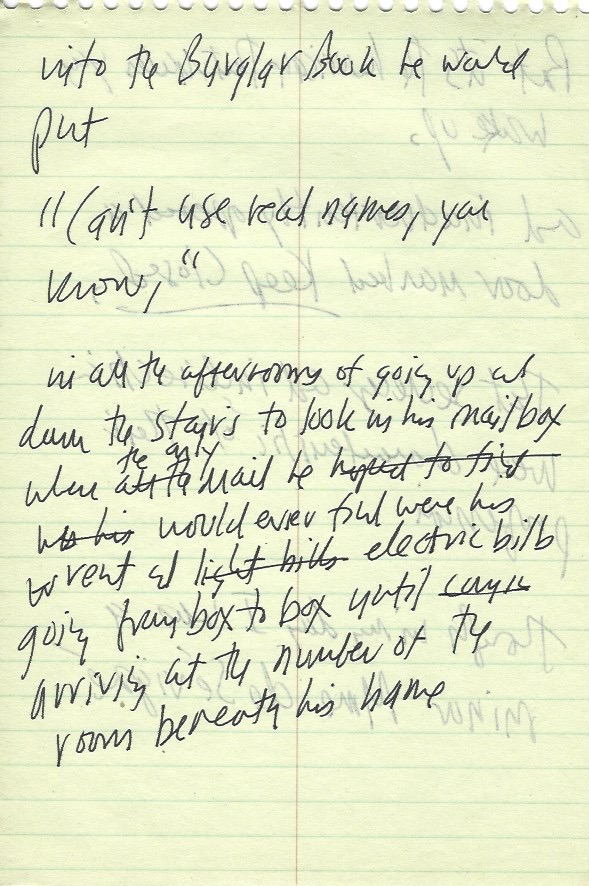 into the Burglar Book he would
put
"Can't use real names, you
know,"
in all the afternoons of going up and
down the stairs to look in his mailbox
the only
when all the mail he hoped to find
was his would ever find were his
rent and light bills electric bills
going from box to box until
arriving at the number of the
room beneath his name